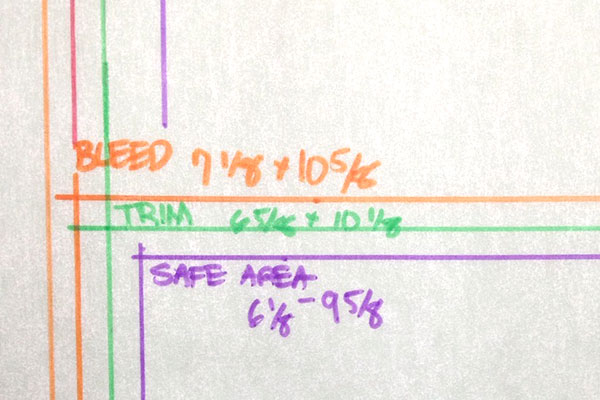 BLEED 7 1/8 x 10 5/8
TRIM 6 5/8 x 10 1/8
SAFE AREA
6 1/8 - 9 5/8